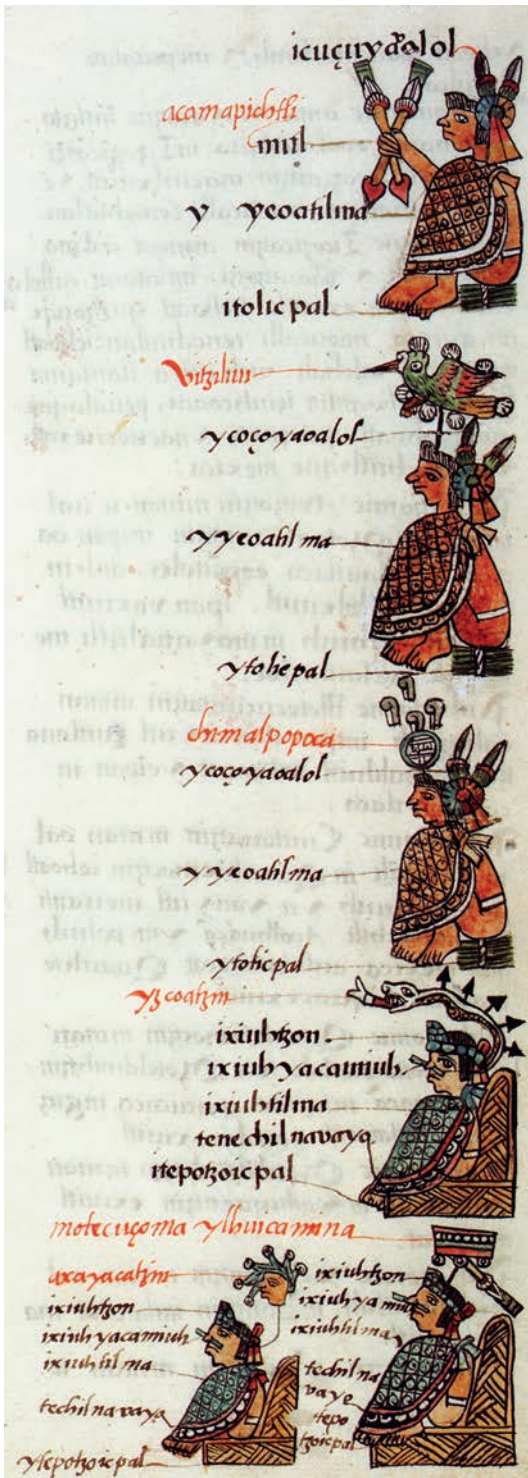 icuçuyaolol
acamapichtli
mitl
y yeoatilma
itolicpal
vitzilin
ycoçoyaoalol
yyeoatilma
ytolicpal
chimalpopoca
ycoçoyaoalol
yyeoatilma
ytolicpal
yzcoatzin
ixiuhtzon.
ixiuh yacamiuh.
ixiuhtilma
tenechilnavayo
itepotzoicpal
motecuçoma ylhuicamina
axayacatzin
ixiuhtzon
ixiuhyacamiuh
ixiuhtilma
techilnavayo
ytepotzoicpal
ixiuhtzon
ixiuhyamiu
ixiuhtilma
techilna
vayo
ytepo
tzoicpal